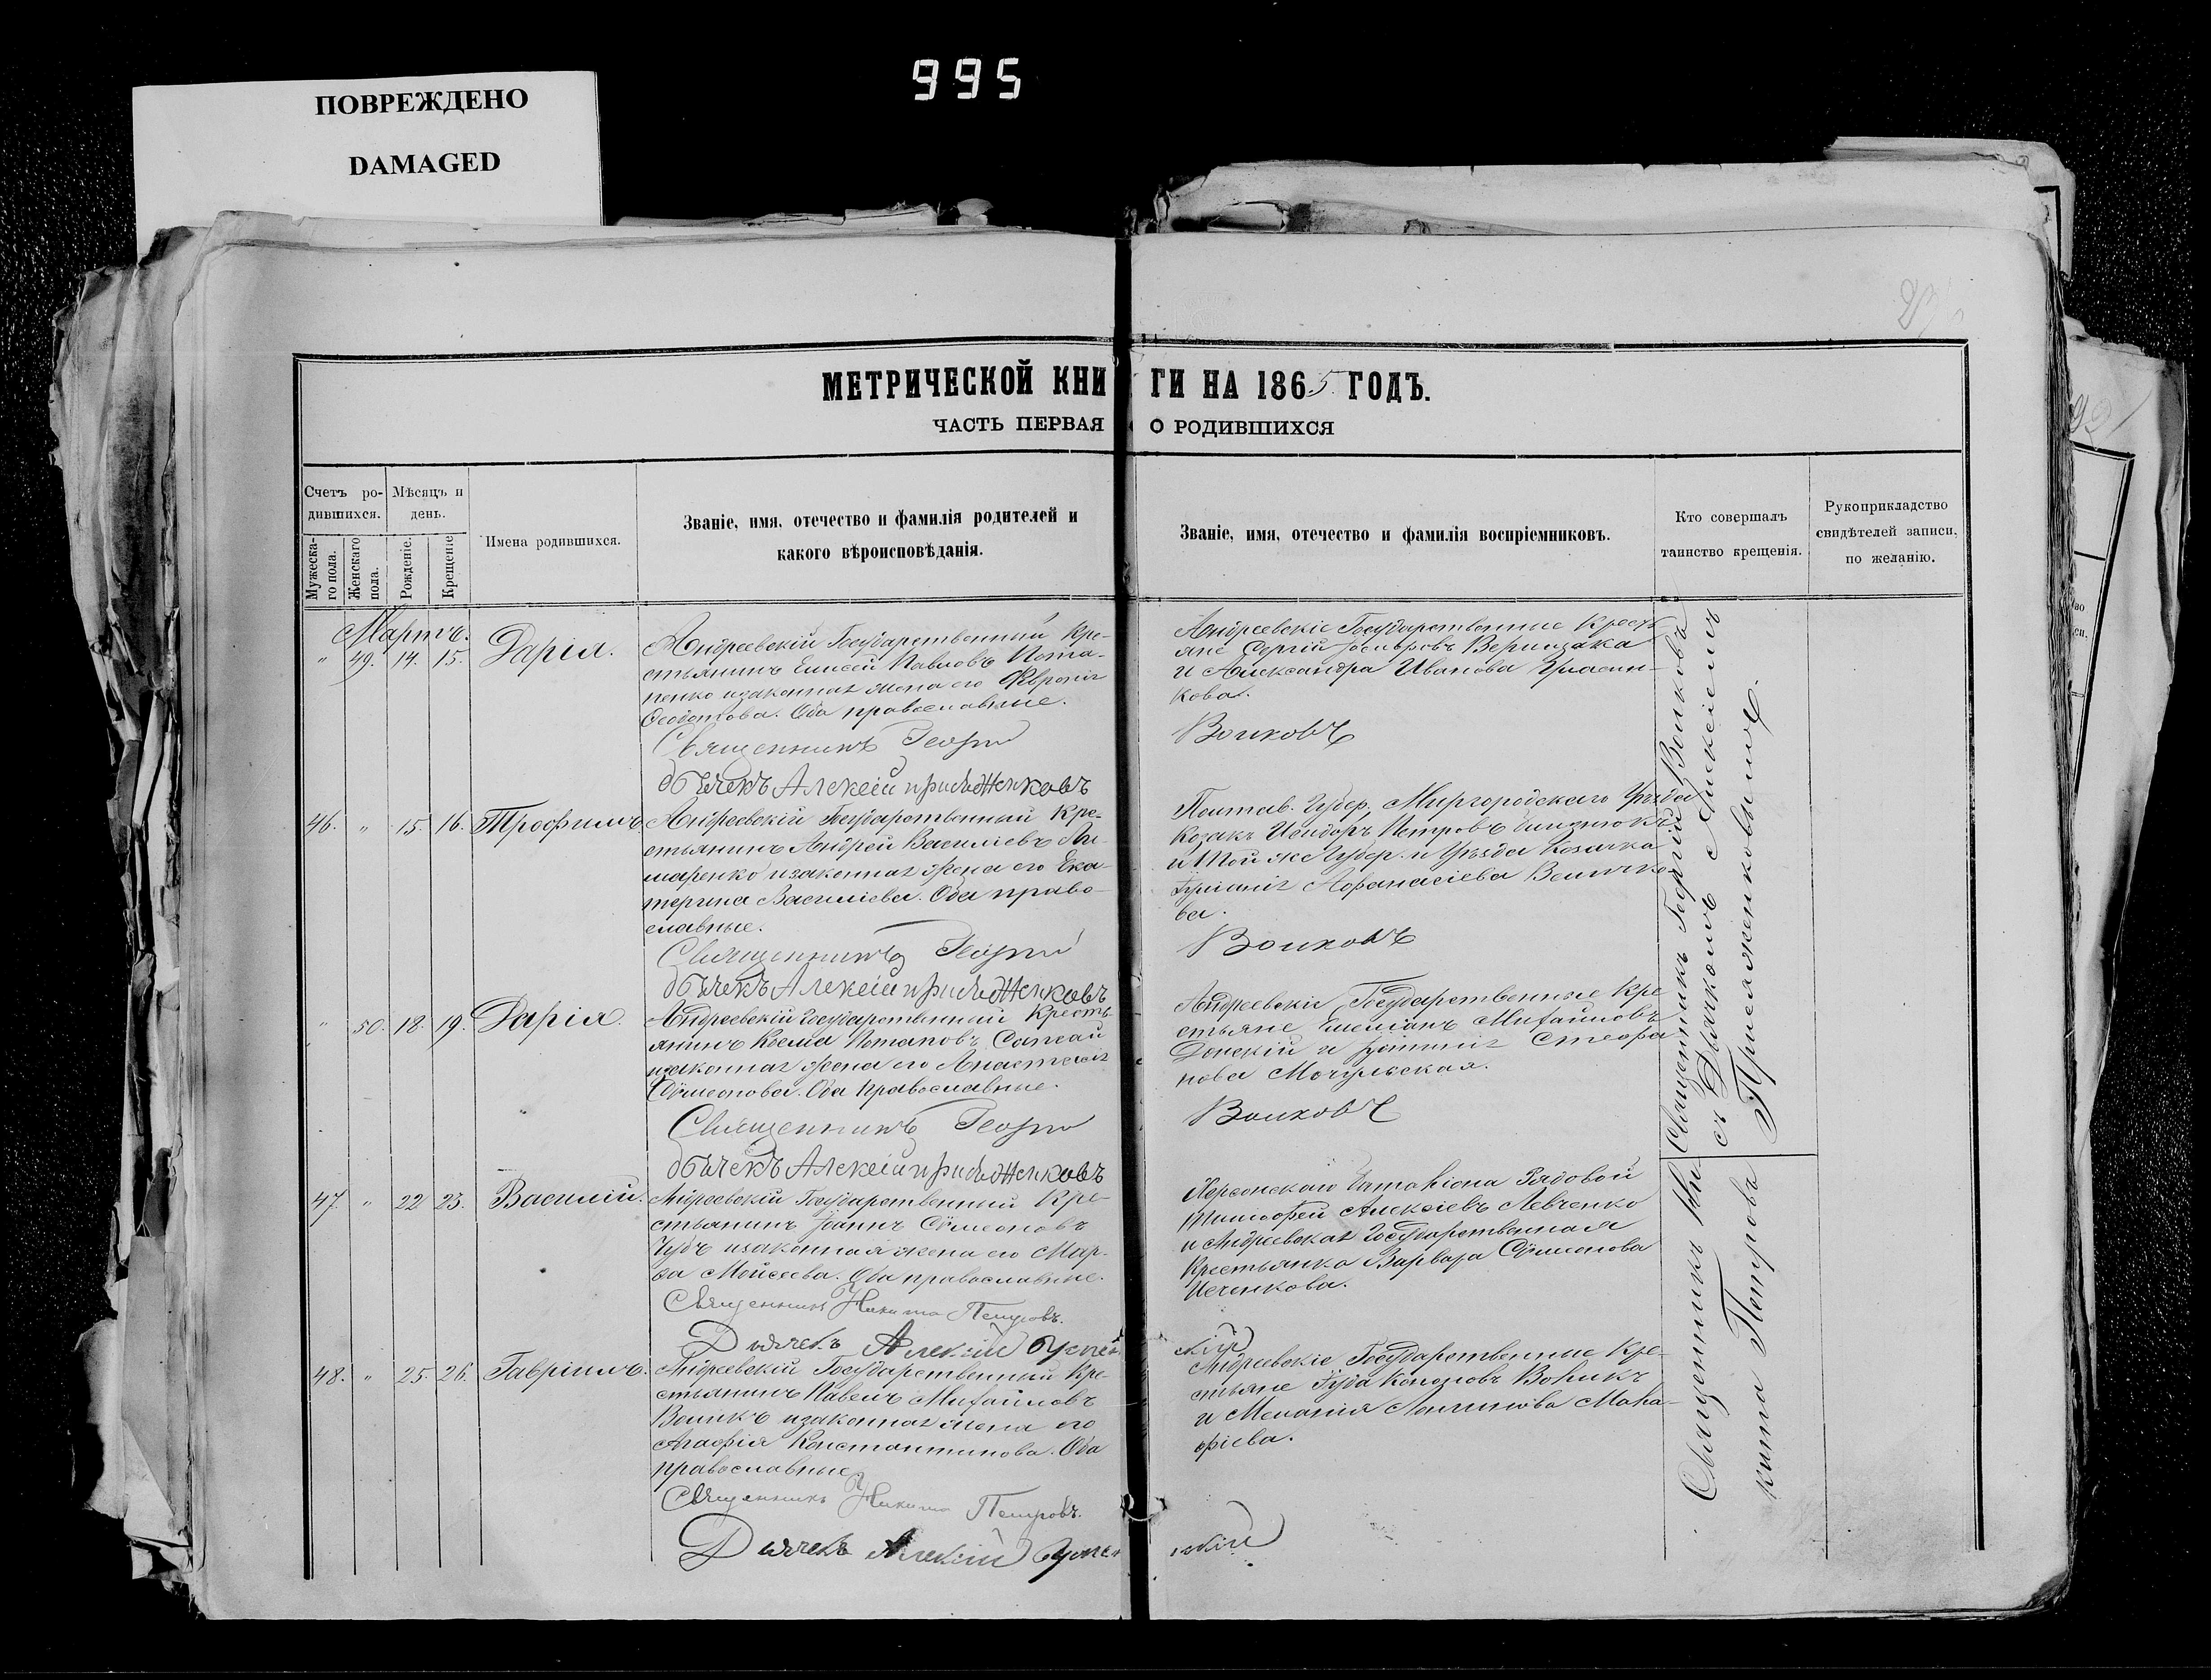 995
ПОВРЕЖДЕНО
DAMAGED
МЕТРИЧЕСКОЙ КНИГИ НА 1865 ГОДЪ.
ЧАСТЬ ПЕРВАЯ О РОДИВШИХСЯ
Счетъ ро-
дившихся.
Мужеска-
го пола.
Женскаго
пола.
Мѣсяцъ и
день.
Рожденіе.
Крещеніе
Имена родившихся.
Званіе, имя, отечество и фамилія родителей и
какого вѣроисповѣданія.
Званіе, имя, отечество и фамилія воспріемниковъ.
Кто совершалъ
таинство крещенія.
Рукоприкладство
свидѣтелей записи,
по желанію.
Мартъ.
" 49. 14. 15. Дарія.
Андреевскій Государственный Кре-
стьянинъ Елисей Павловъ Пота-
пенко и законная жена его
Ѳеодотова. Оба православные.
Священникъ Георгій
Дьячекъ Алексій Присяженковъ
Андреевскіе Государственные Кресть
яне Сергій
и Александра Иванова
кова.
Волковъ
46. " 15. 16. Трофимъ
Андреевскій Государственный Кре-
стьянинъ Андрей Василіевъ
маренко и законная жена его Ека-
терина Василіева. Оба право-
славные.
Священникъ Георгій
Дьячекъ Алексій Присяженковъ
Полтав. Губер. Миргородскаго Уѣзда
Козакъ Исидоръ Петровъ
и той же Губер. и Уѣзда Козачка
Іуліанія Афанасіева Велич
ва.
Волковъ
" 50. 18. 19. Дарія.
Андреевскій Государственный Кресть
янинъ Косма Потаповъ
и законная жена его Анастасія
Сѵмеонова. Оба православные.
Священникъ Георгій
Дьячекъ Алексій Присяженковъ
Андреевскіе Государственные Кре
стьяне Емеліанъ Михайловъ
Донскій и Стефа
нова Могульская.
Волковъ
Священникъ Георгій Волковъ
съ Дьячкомъ Алексіемъ
Присяженковымъ.
47. " 22 23. Василій.
Андреевскій Государственный Кре-
стьянинъ Іоаннъ Сѵмеоновъ
и законная жена его Мар-
ѳа Мойсеева. Оба православные.
Священникъ Никита Петровъ.
Дьячекъ Алексій
Херсонскаго Рядовой
Тимофей Алексіевъ Левченко
и Андреевская Государственная
Крестьянка Варвара Сѵмеонова
48. " 25. 26. Гавріилъ.
Андреевскій Государственный Кре-
стьянинъ Павелъ Михайловъ
Воликъ и законная жена его
Агафія Константинова. Оба
православные
Священникъ Никита Петровъ.
Дьячекъ Алексій
Андреевскіе Государственные Кре-
стьяне Іуда Кононовъ
и Меланія Логгинова Мака-
Священникъ Ни
кита Петровъ